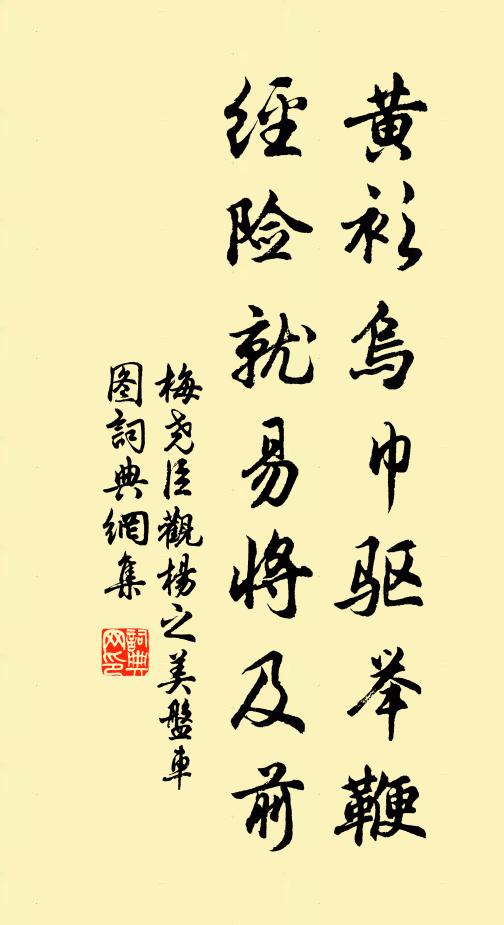 黄衫乌巾驱举鞭
经险就易将及前
梅尧臣觀楊之美盤車
图詞典網集
詞典
网印